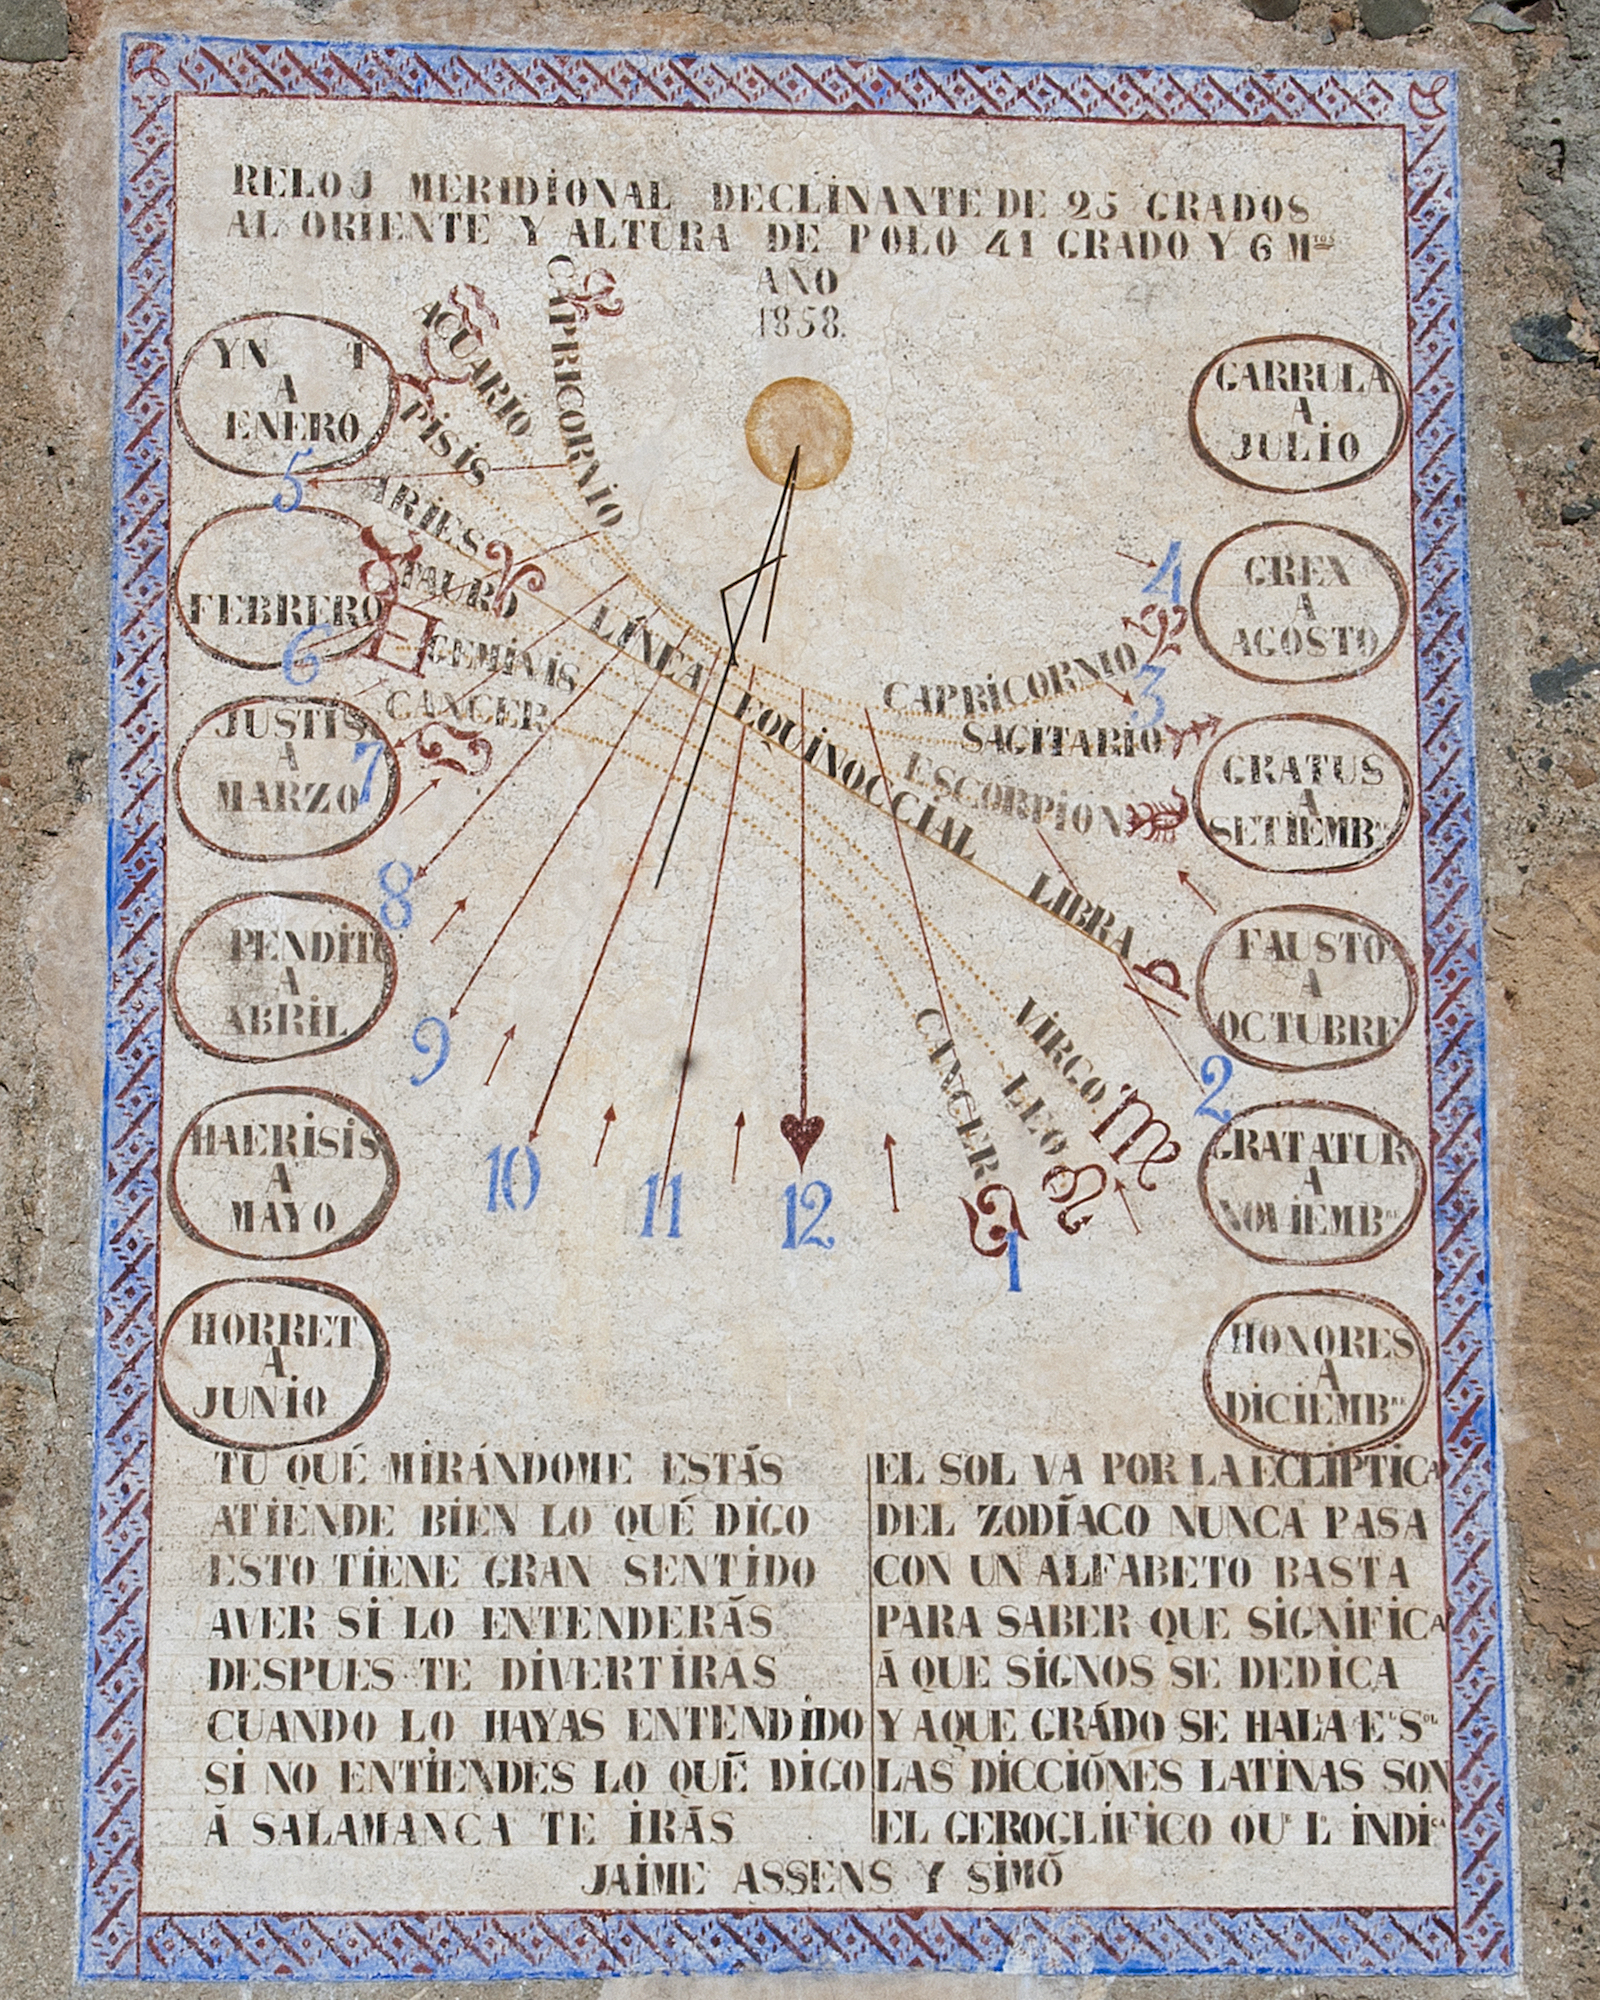 RELOJ MERIDIONAL DECLINANTE DE 25 GRADOS
AL ORIENTE Y ALTURA DE POLO 41 GRADO Y 6 Mtos
AÑO
1858.
YN T
A
ENERO
FEBRERO
JUSTIS
A
MARZO
PENDITO
A
ABRIL
HAERISIS
A
MAYO
HORRET
A
JUNIO
CAPRICORNIO
ACUARIO
PISIS
ARIES
TAURO
GEMINIS
CANCER
LÍNEA EQUINOCCIAL
CAPRICORNIO
SAGITARIO
ESCORPION
LIBRA
VIRGO.
LEO
CANCER
5
6
7
8
9
10
11
12
1
2
3
4
GARRULA
A
JULIO
GREX
A
AGOSTO
GRATUS
A
SETIEMBre
FAUSTO
A
OCTUBRE
GRATATUR
A
NOVIEMBRE
HONORES
A
DICIEMBRE
TU QUÉ MIRÁNDOME ESTÁS
ATIENDE BIEN LO QUÉ DIGO
ESTO TIENE GRAN SENTIDO
AVER SI LO ENTENDERÁS
DESPUES TE DIVERTIRAS
CUANDO LO HAYAS ENTENDIDO
SI NO ENTIENDES LO QUÉ DIGO
Á SALAMANCA TE IRÁS
EL SOL VA POR LA ECLÍPTICA
DEL ZODÍACO NUNCA PASA
CON UN ALFABETO BASTA
PARA SABER QUE SIGNIFICA
Á QUE SIGNOS SE DEDICA
Y AQUE GRÁDO SE HALA EL SOL
LAS DICCIÓNES LATINAS SON
EL GEROGLIFICO QUE Lo INDICA
JAIME ASSENS Y SIMÓ